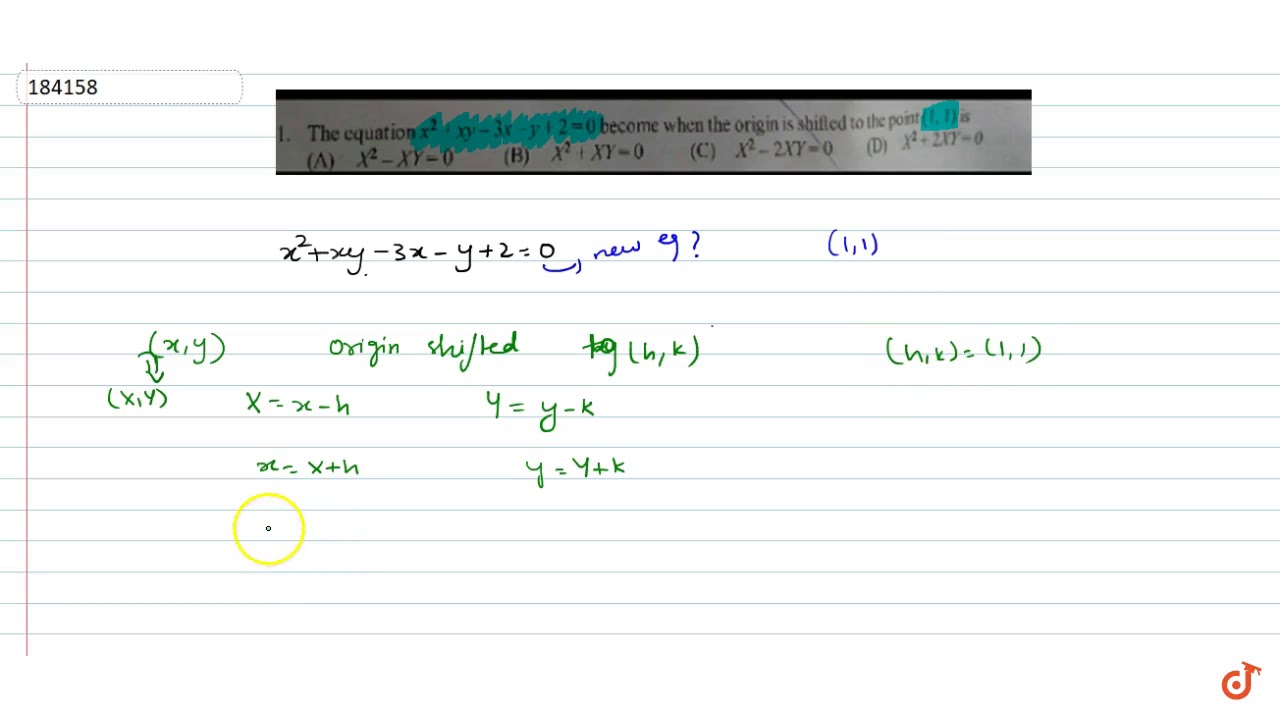 184158
1. The equation x² + xy – 3x – y + 2 = 0 become when the origin is shifted to the point (1, 1) is
(A) X² – XY = 0 (B) X² + XY = 0 (C) X² – 2XY = 0 (D) X² + 2XY = 0
x²+xy-3x-y+2=0, new eq? (1,1)
(x,y) origin shifted to (h,k) (h,k)=(1,1)
(X,Y) X=x-h Y=y-k
x=X+h y=Y+k